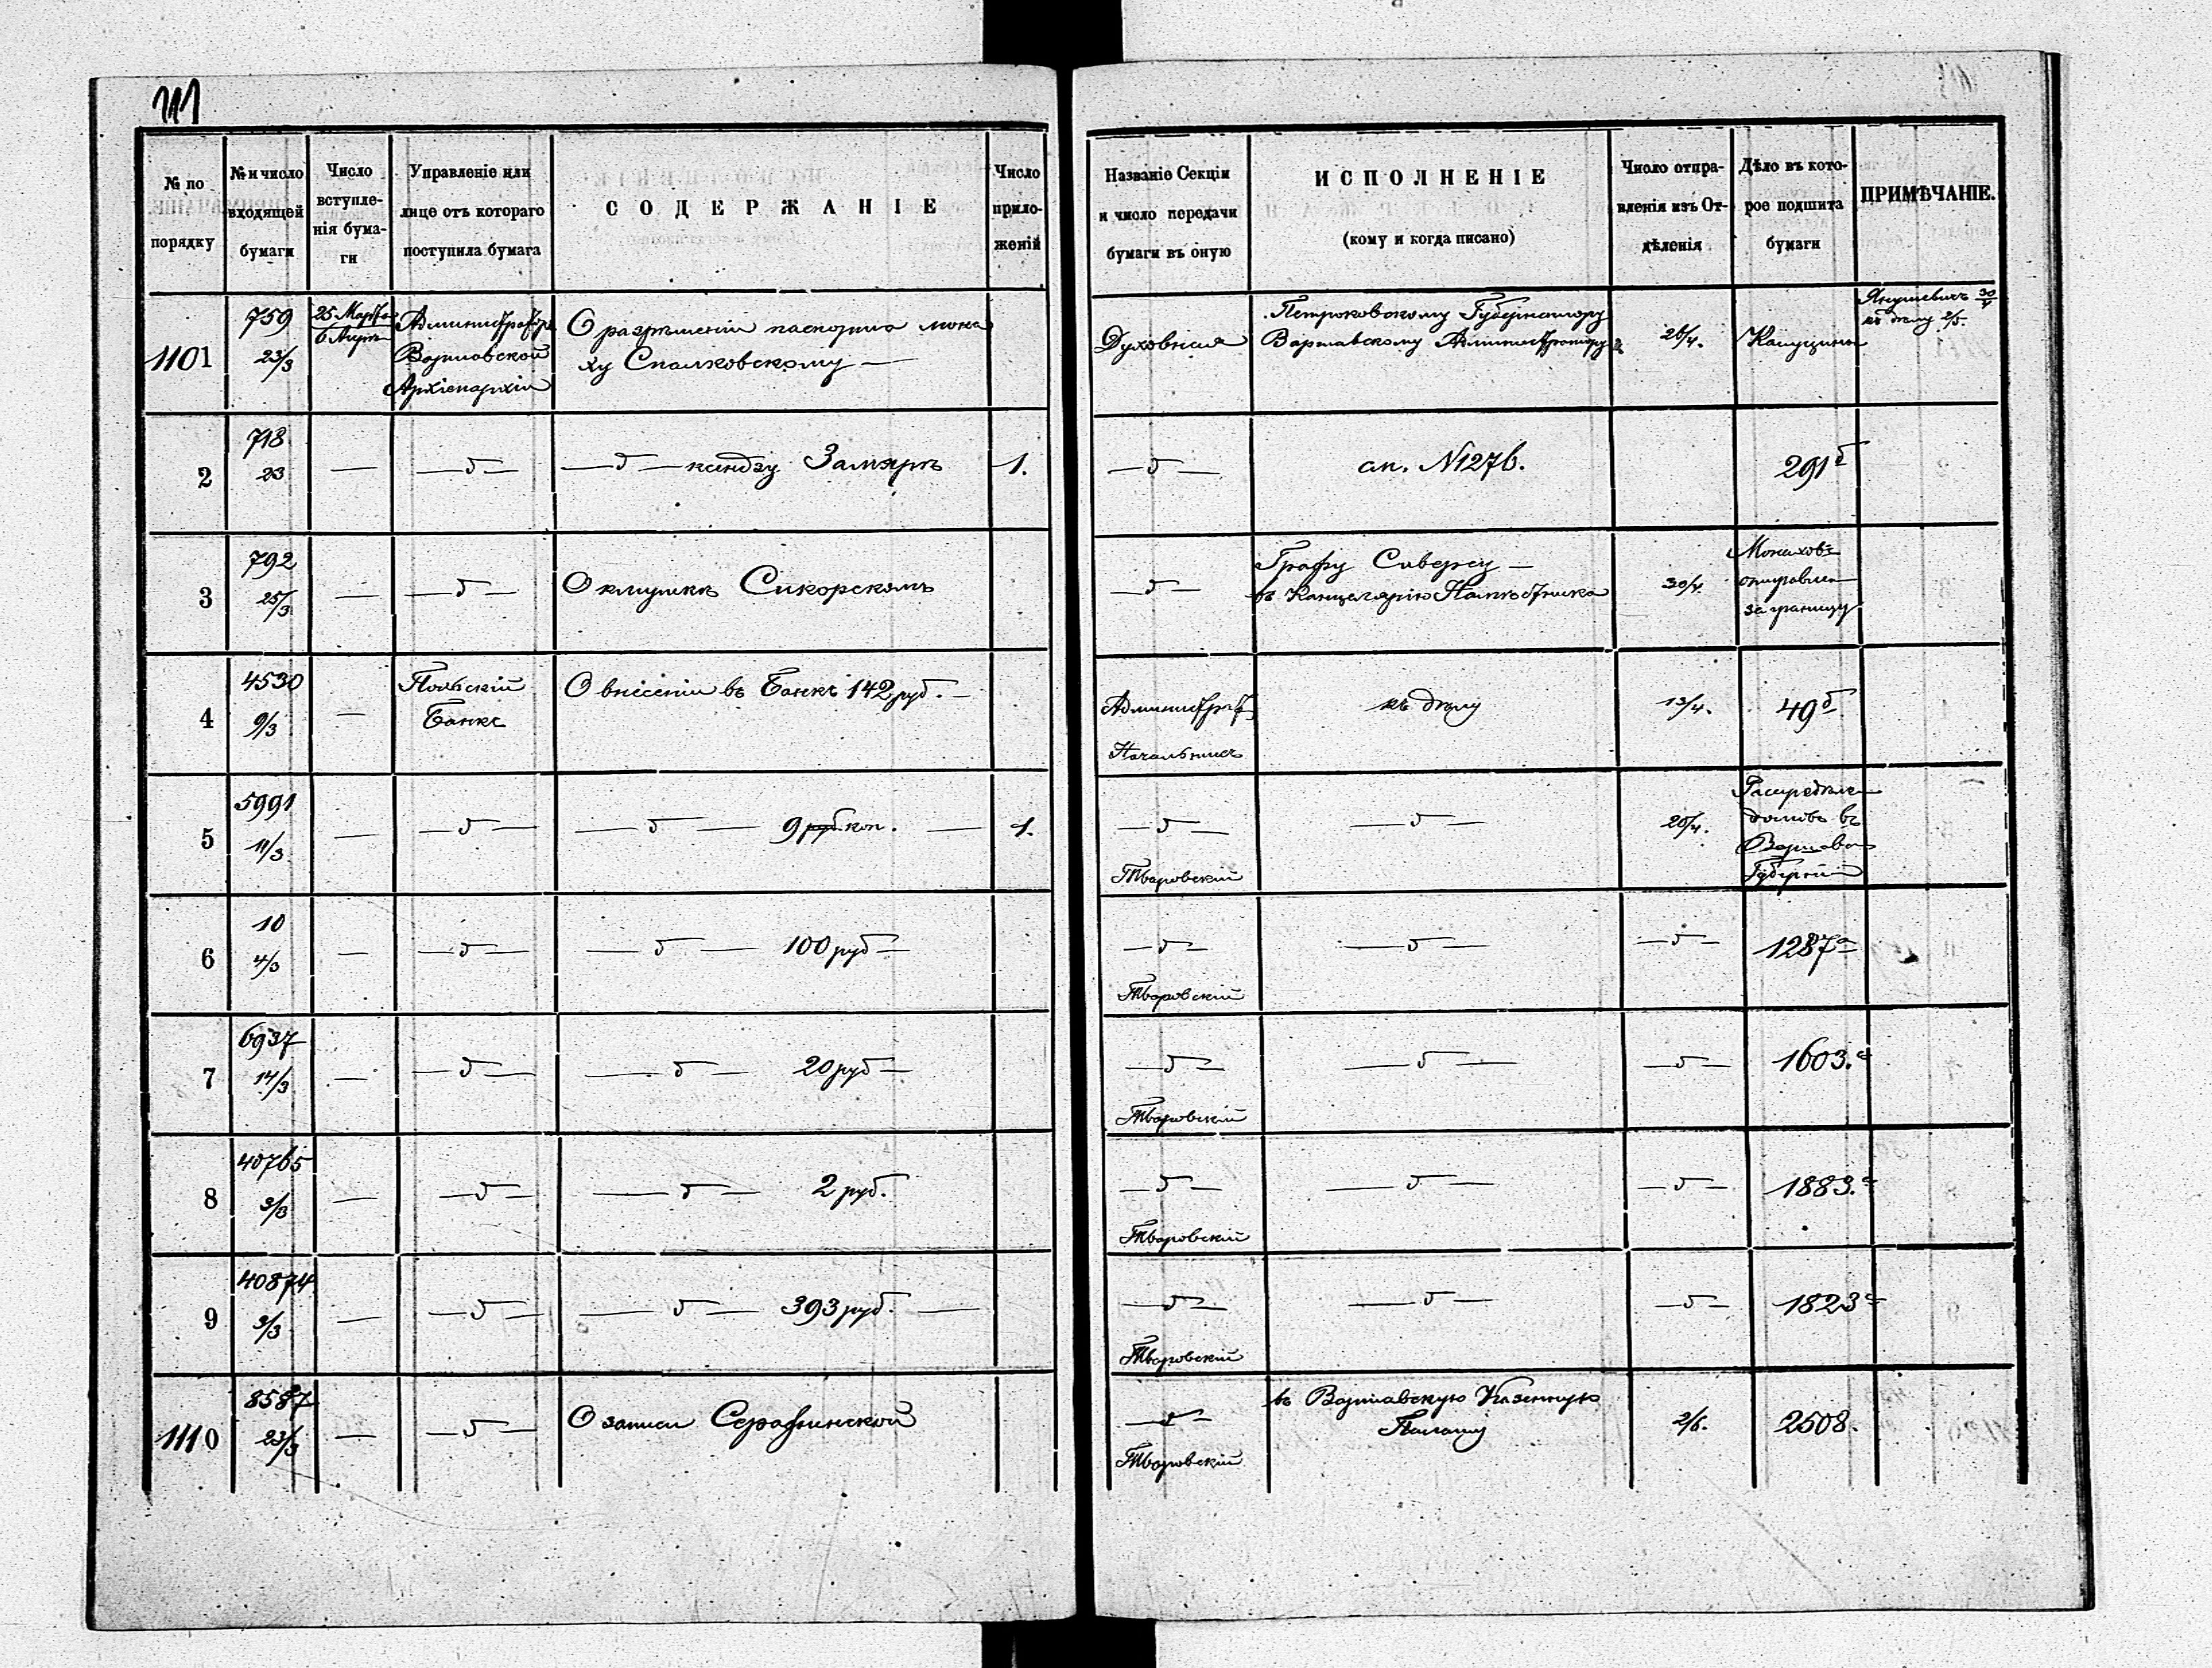 111
№ по порядку
№ и число входящей бумаги
Число вступле-
нія бума-
ги
Управленіе или
лице отъ котораго
поступила бумага
СОДЕРЖАНІЕ
Число
прило-
женій
Названіе Секціи
и число передачи
бумаги въ оную
ИСПОЛНЕНІЕ
(кому и когда писано)
Число отпра-
вленія изъ От-
дѣленія
Дѣло въ кото-
рое подшита
бумаги
ПРИМѢЧАНІЕ.
1101
759
23/3
25 Марта
6 Апр.
Администраторъ
Варшавской
Архіепархіи
О разрѣшеніи паспорта мона
ху Спалковскому —
Духовная
Петроковскому Губернатору
Варшавскому Администратору
26/4.
Капуцины
Янушевичъ 30/4
къ дѣлу 2/5.
2
718
23
—
— д —
— д — ксендзу
1.
— д —
сп. N1276.
291 б
3
792
25/3
—
— д —
О клирикѣ Сикорскомъ
— д —
Графу Сиверсу —
въ Канцелярію Намѣстника
30/4.
Монахов
отправлен
за границу
4
4530
9/3
—
Польскій
Банкъ
О внесеніи въ Банкъ 142 руб. —
Администрат.
Начальникъ
къ дѣлу
13/4.
49 б
5
5991
11/3
—
— д —
— д — 9 руб коп. —
1.
— д —
Тваровскій
— д —
20/4.
домовъ въ
Варшавской
Губерніи
6
10
4/3
—
— д —
— д — 100 руб —
— д —
Тваровскій
— д —
— д —
1287 а
7
6937
14/3
—
— д —
— д — 20 руб —
— д —
Тваровскій
— д —
— д —
1603. а
8
40765
3/3
—
— д —
— д — 2 руб.
— д —
Тваровскій
— д —
— д —
1883. а
9
40874
3/3
—
— д —
— д — 393 руб. —
— д —
Тваровскій
— д —
— д —
1823 а
1110
8587
23/3
—
— д —
О записи Серафинской
— д —
Тваровскій
въ Варшавскую Казенную
Палату
2/6.
2508.